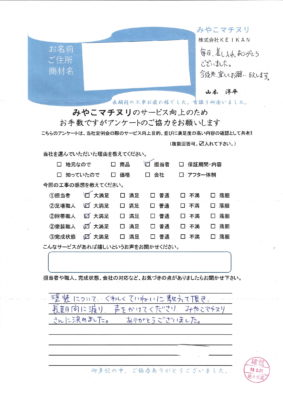 みやこマチヌリ
株式会社KEIKAN
お名前
ご住所
商材名
毎日、差し入れ ありがとう
ございました。
今後共、宜しくお願い致します。
山本 洋平
長期間の工事お疲れ様でした。有難う御座いました。
みやこマチヌリのサービス向上のため
お手数ですがアンケートのご協力をお願いします
こちらのアンケートは、当社定例会の際のサービス向上目的、並びに満足度の高い内容の確認として共有
(複数回答可、☑入れて下さい。)
当社を選んでいただいた理由を教えてください。
□ 地元なので □ 商品 ☑ 担当者 □ 保証期間・内容
□ 知っていたので □ 価格 □ 会社 □ アフター体制
今回の工事の感想を教えてください。
①担当者 ☑ 大満足 □ 満足 □ 普通 □ 不満 □ 落胆
②足場職人 ☑ 大満足 □ 満足 □ 普通 □ 不満 □ 落胆
③防蟻職人 ☑ 大満足 □ 満足 □ 普通 □ 不満 □ 落胆
④塗装職人 ☑ 大満足 □ 満足 □ 普通 □ 不満 □ 落胆
⑤完成状態 ☑ 大満足 □ 満足 □ 普通 □ 不満 □ 落胆
こんなサービスがあれば嬉しいというお声をお聞かせください。
担当者や職人、完成状態、会社の対応など、お気づきの点がありましたらお聞かせ下さい。
塗装について、くわしくていねいに教えて頂き、
長期間に渡り 声をかけてくださり みやこマチヌリ
さんに決めました。 ありがとうございました。
御多忙の中、ご協力ありがとうございました。